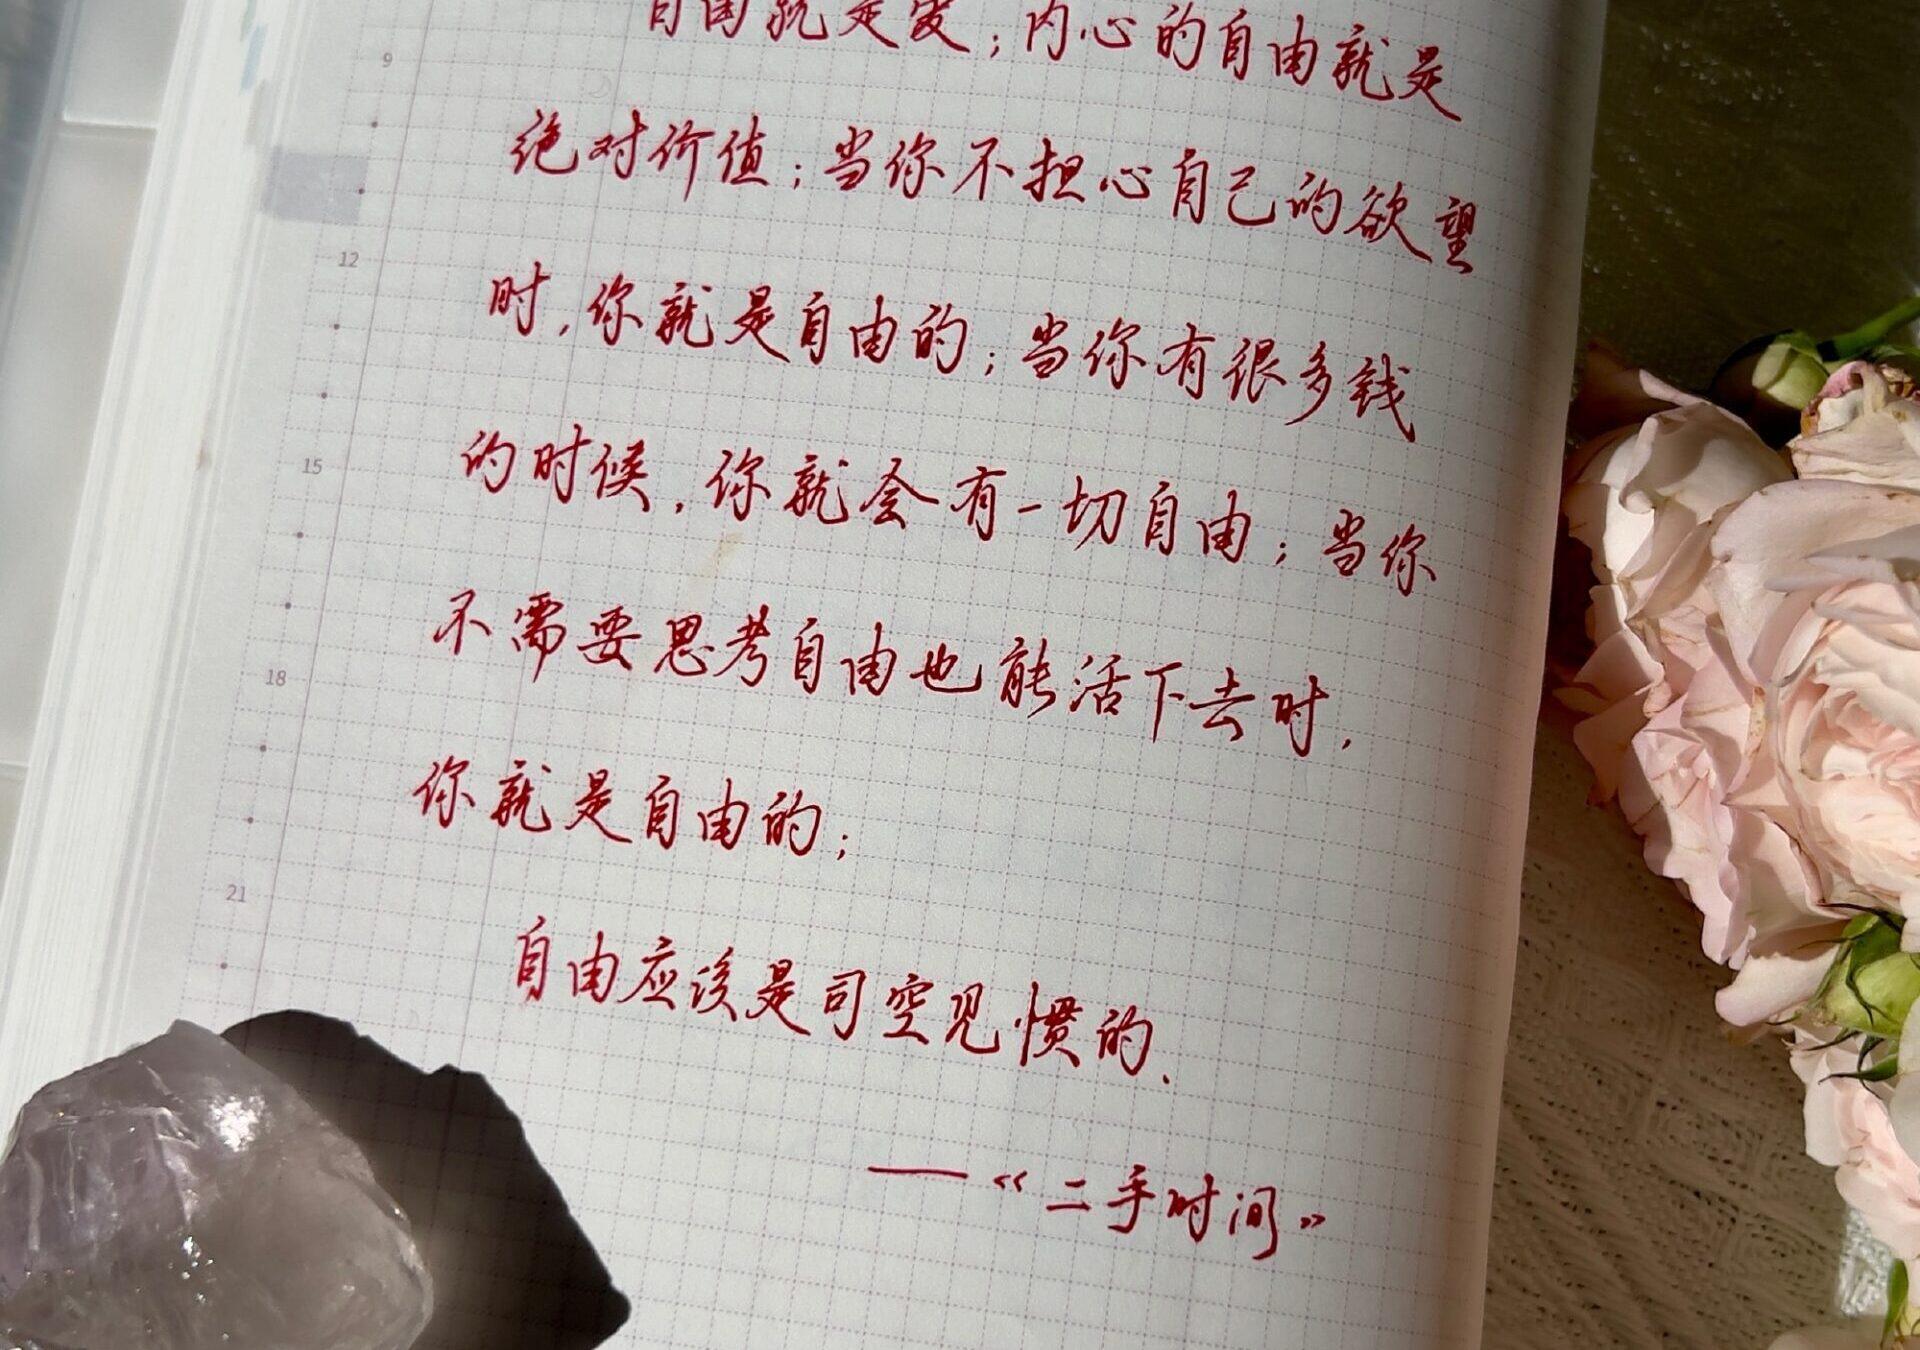 自由就是爱；内心的自由就是
9
绝对价值；当你不担心自己的欲望
12
时，你就是自由的；当你有很多钱
15
的时候，你就会有一切自由；当你
不需要思考自由也能活下去时，
18
你就是自由的；
21
自由应该是司空见惯的.
——《二手时间》